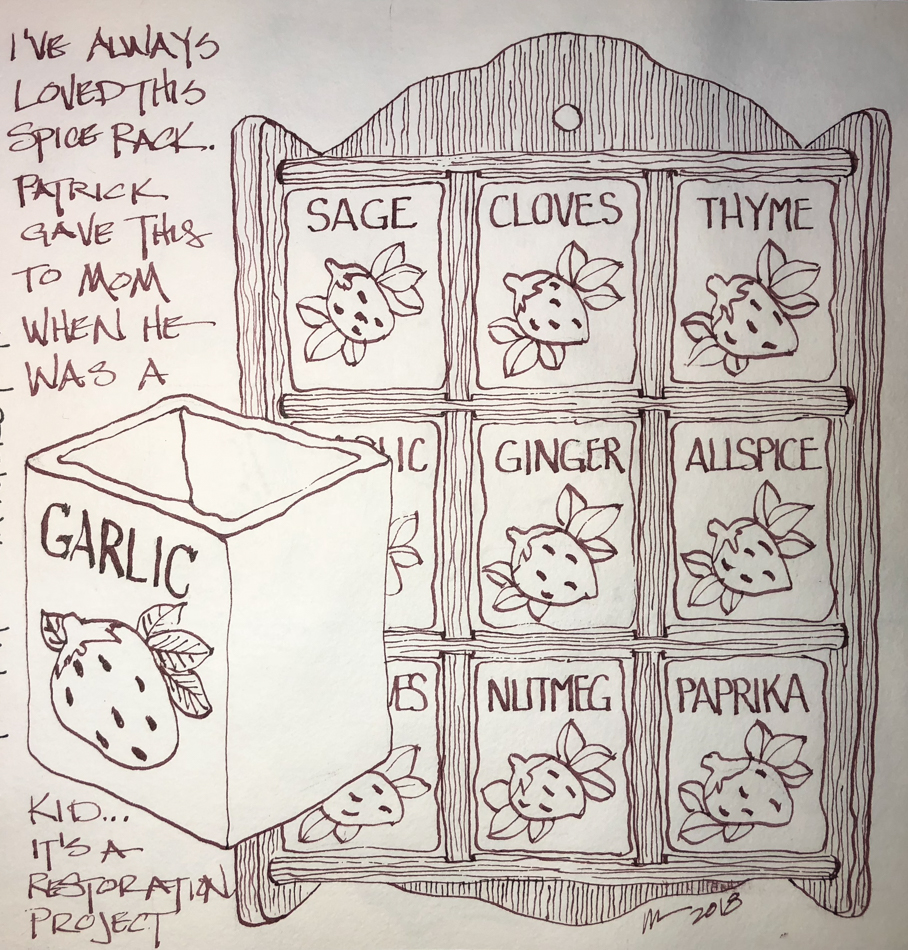 I'VE ALWAYS
LOVED THIS
SPICE RACK.
PATRICK
GAVE THIS
TO MOM
WHEN HE
WAS A
KID...
IT'S A
RESTORATION
PROJECT
SAGE
CLOVES
THYME
GARLIC
LIC
GINGER
ALLSPICE
ES
NUTMEG
PAPRIKA
2018